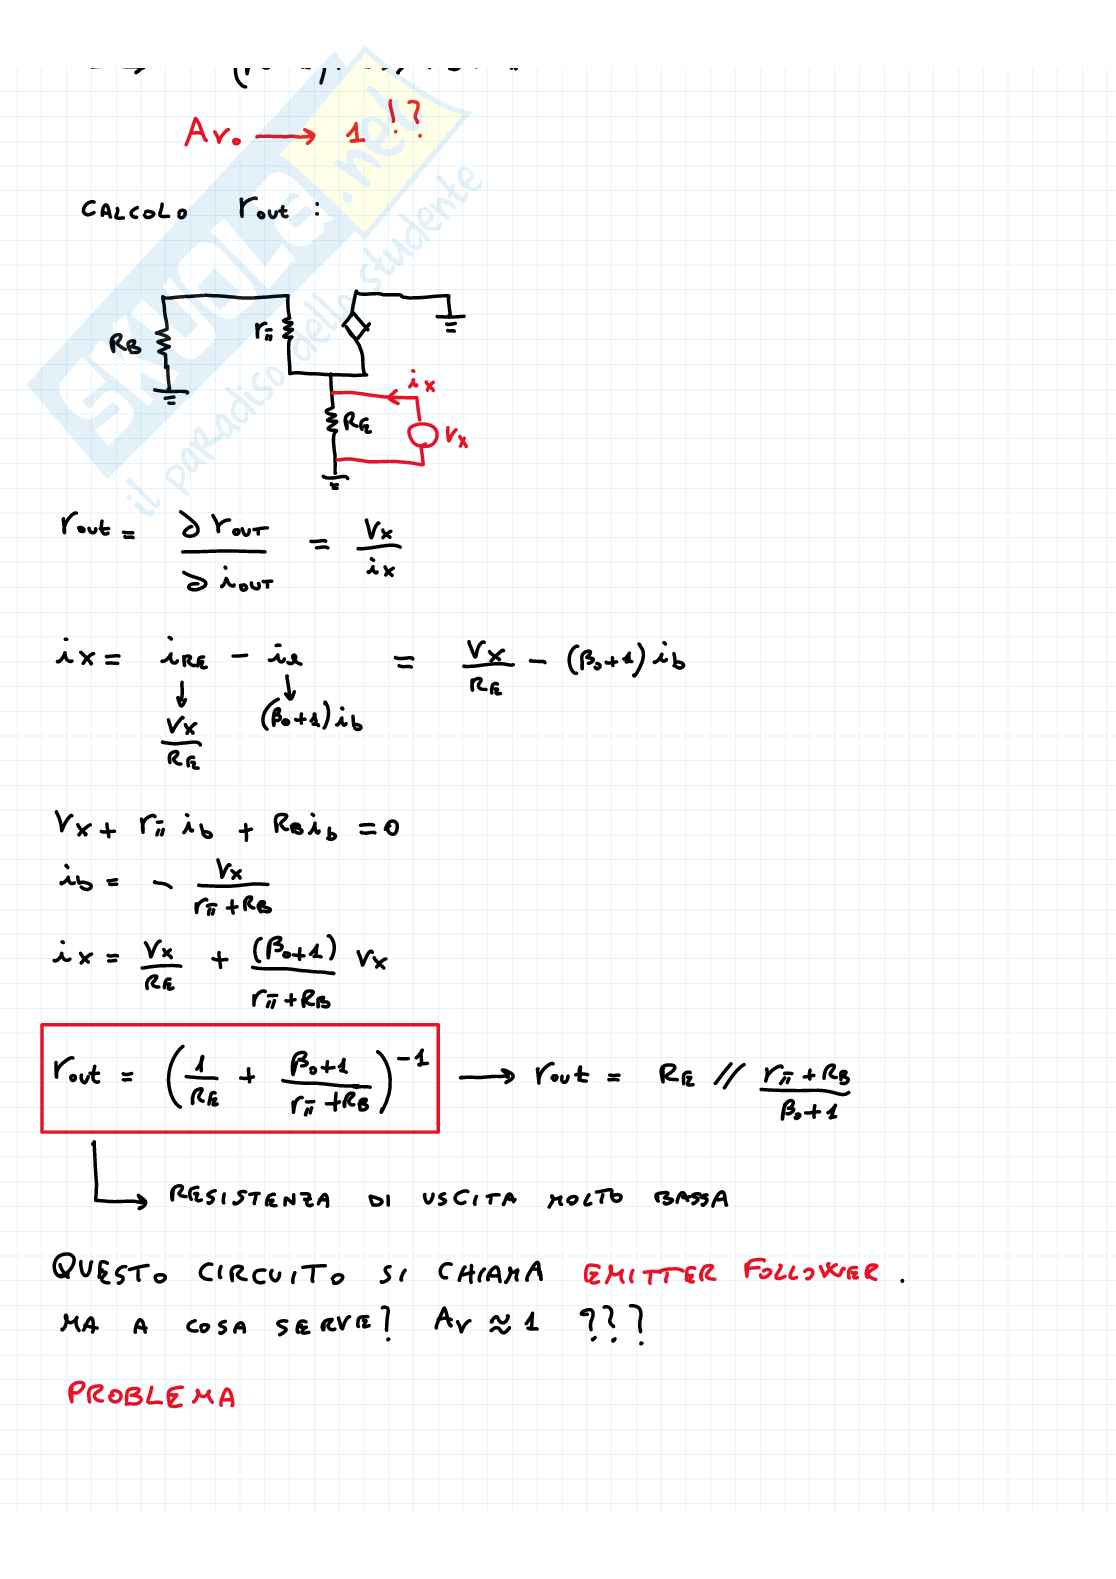 Av₀ ⟶ 1 !?
CALCOLO rout :
RB
rπ
ix
RE
Vx
rout = ∂ VOUT / ∂ iOUT = Vx / ix
ix = iRE − ie = Vx / RE − (β₀+1) ib
↓ ↓
Vx / RE (β₀+1) ib
Vx + rπ ib + RB ib = 0
ib = − Vx / (rπ + RB)
ix = Vx / RE + (β₀+1) / (rπ + RB) Vx
rout = (1 / RE + (β₀+1) / (rπ + RB))⁻¹ ⟶ rout = RE // (rπ + RB) / (β₀+1)
RESISTENZA DI USCITA MOLTO BASSA
QUESTO CIRCUITO SI CHIAMA EMITTER FOLLOWER .
MA A COSA SERVE? Av ≈ 1 ???
PROBLEMA
SKUOLA.net
il paradiso dello studente